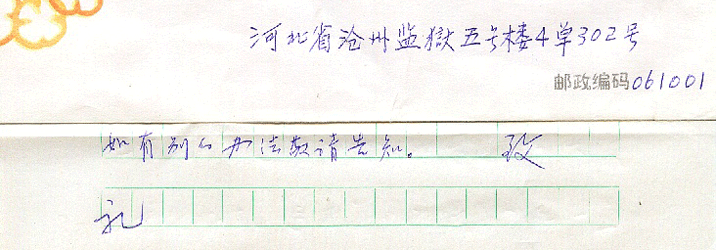 河北省沧州监獄五号楼4单302号
邮政编码061001
如有别的办法敬请告知。 致
礼